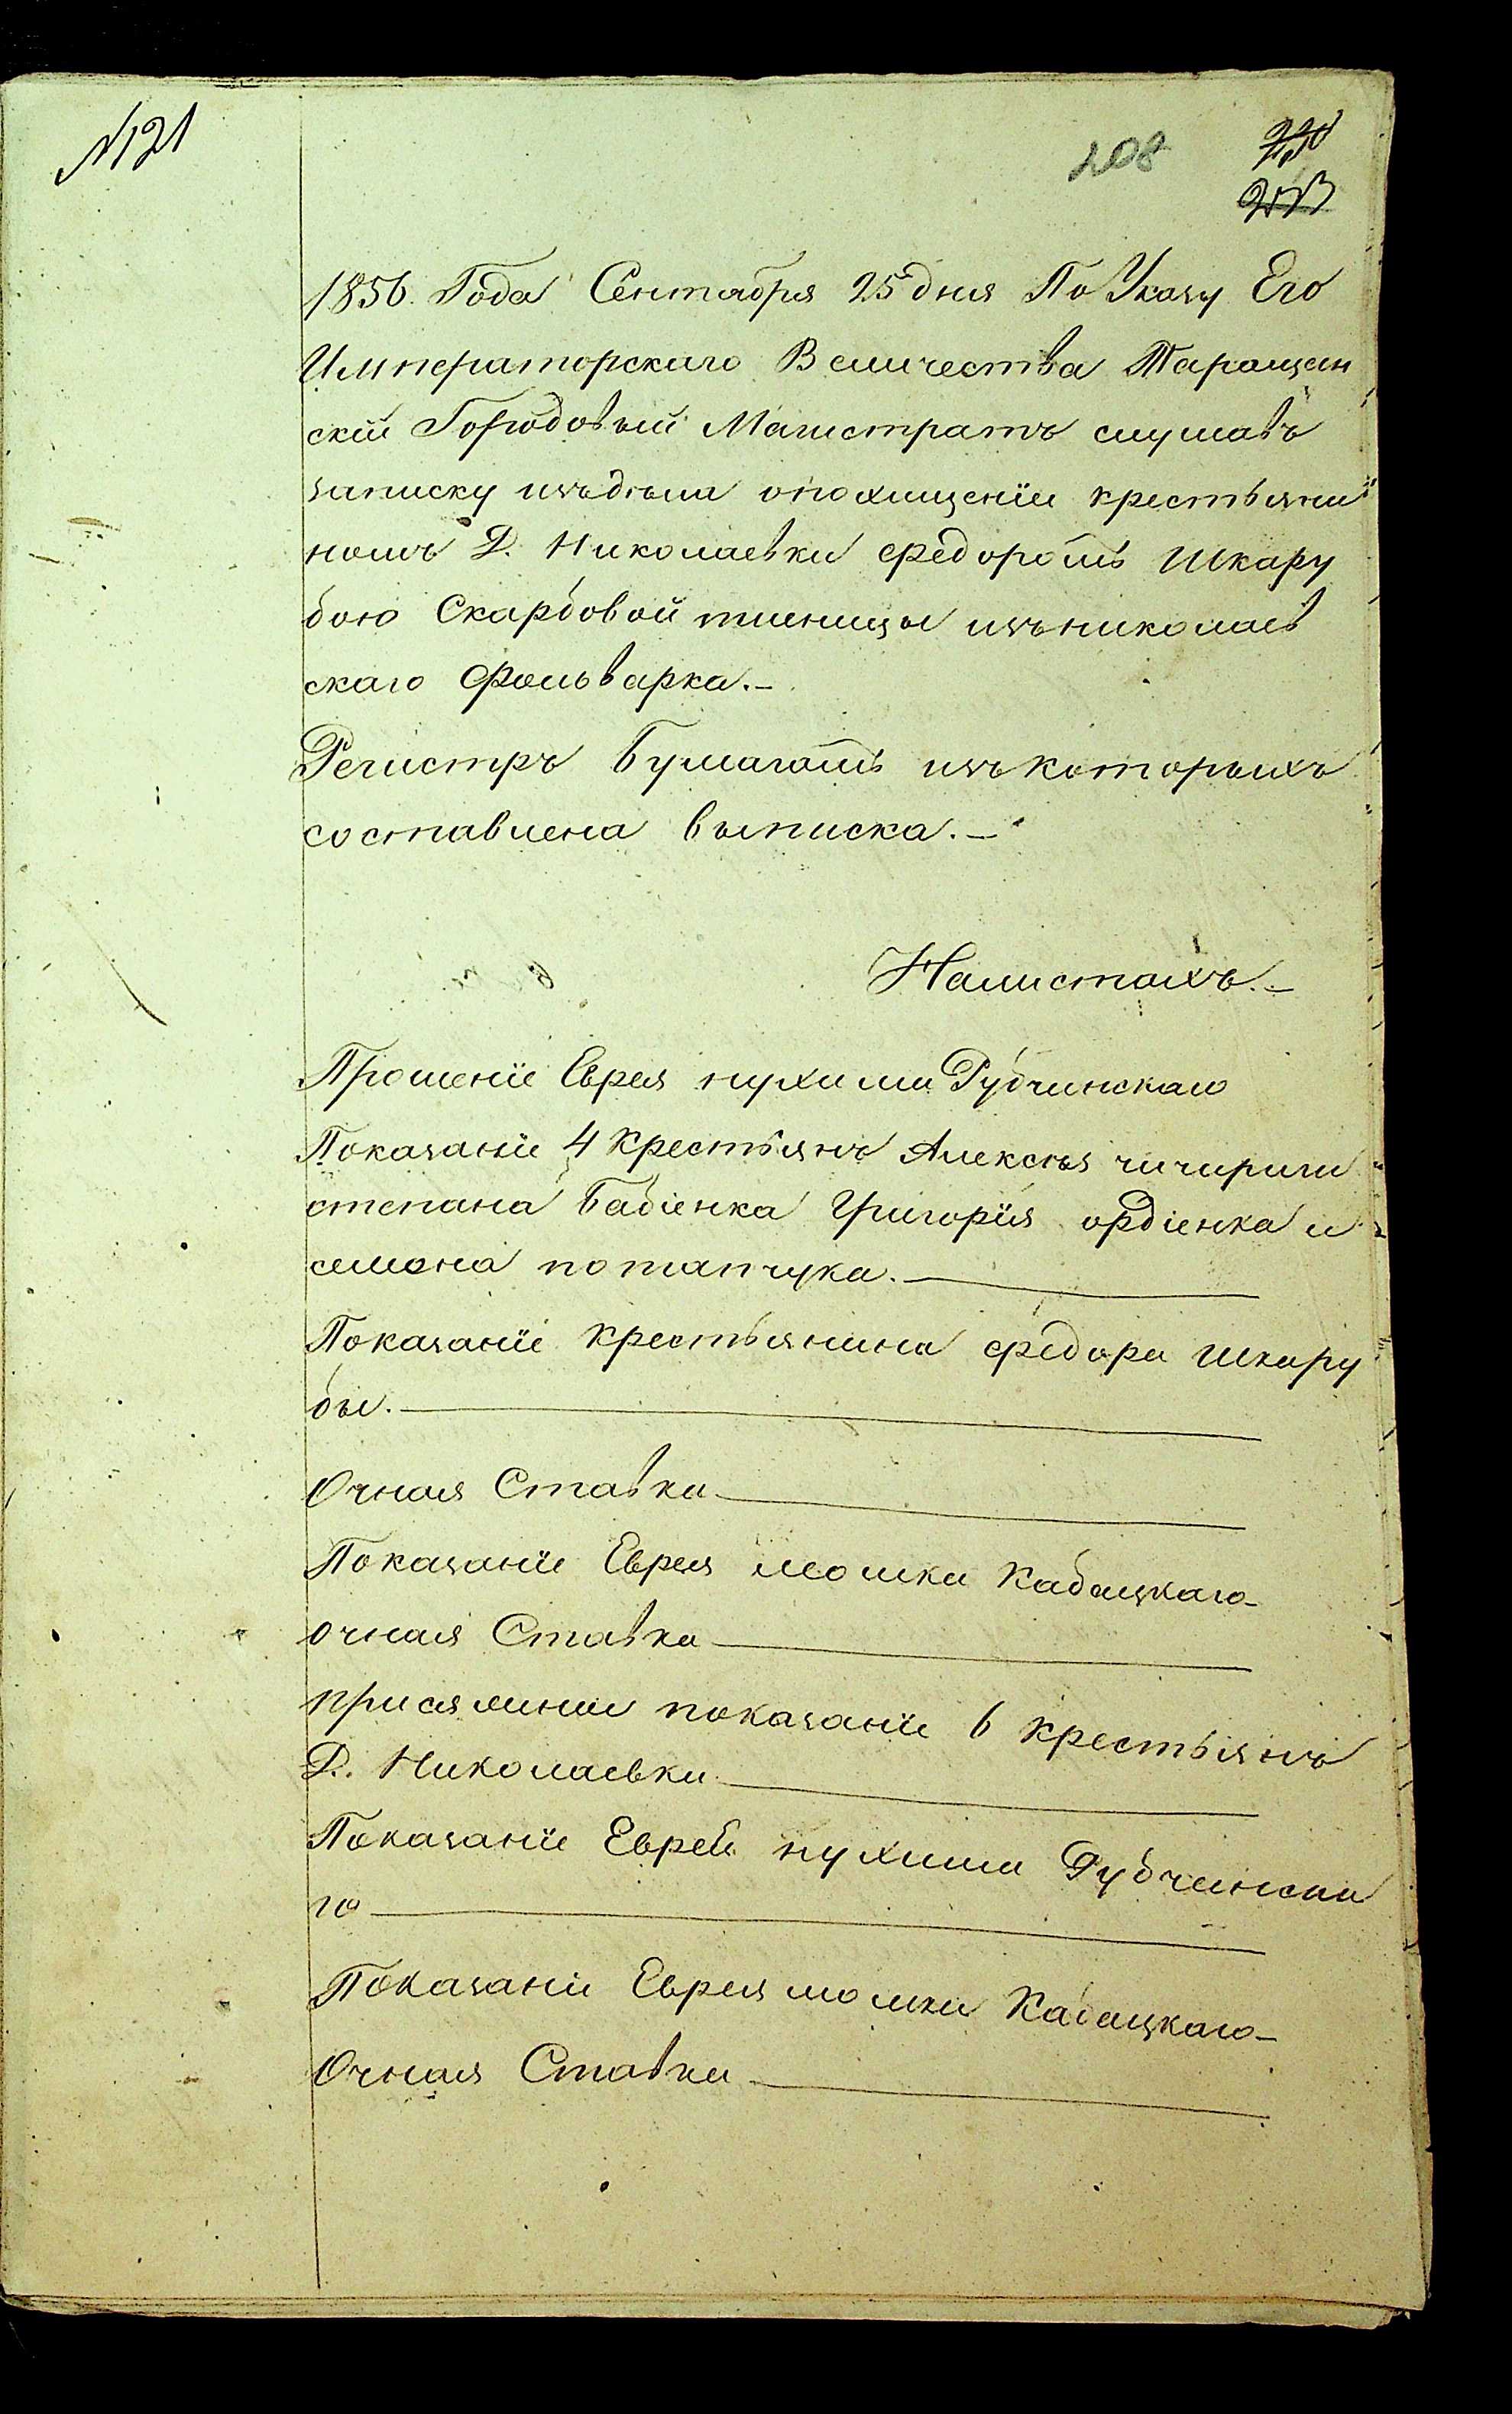 №121
208
1856. Года Сентября 25 дня По Указу Его
Императорскаго Величества Таращан
скій Городовый Магистратъ слушавъ
записку изъ дѣла о похищеніи крестьяни
номъ Д. Николаевки Федоромъ Шкару
бою Скарбовой пшеницы изъ николаев
скаго Фольварка.—
Регистръ бумагамъ изъ которыхъ
составлена выписка.—
На листахъ.—
Прошеніе Еврея нухима Рубчинскаго
Показаніе 4 крестьянъ Алексѣя чичириги
степана Бабіенка Григорія ордіенка и
семена потапчука.—
Показаніе крестьянина федора Шкару
бы.—
Очная Ставка—
Показаніе Еврея мошка Кабацкаго—
очная Ставка—
присяжние показаніе 6 крестьянъ
Д. Николаевки—
Показаніе Еврея нухима Рубчинска
го—
Показаніе Еврея мошки Кабацкаго—
Очная Ставка—